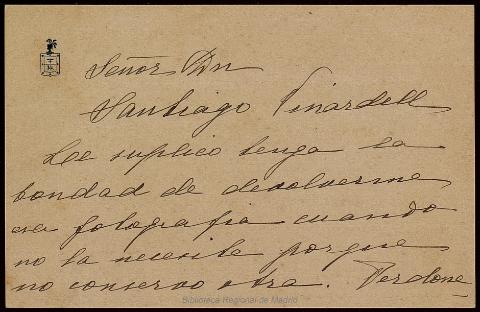 Señor Dn
Santiago Vinardell
Le suplico tenga la
bondad de devolverme
esa fotografia cuando
no la necesite porque
no conservo otra. Perdone
Biblioteca Regional de Madrid